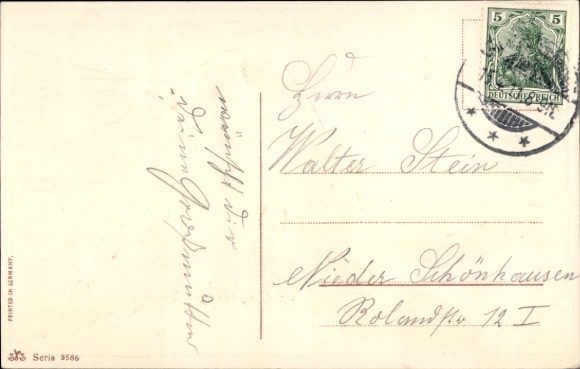 wünscht dir
Deine Großmutter
Herrn
Walter Stein
Nieder Schönhausen
Rolandstr 12 I
5 5
DEUTSCHES REICH
PRINTED IN GERMANY.
Serie 9586